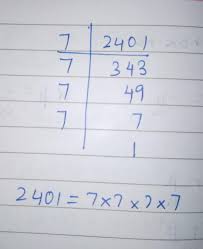 7 | 2401
7 | 343
7 | 49
7 | 7
1
2401 = 7×7×7×7